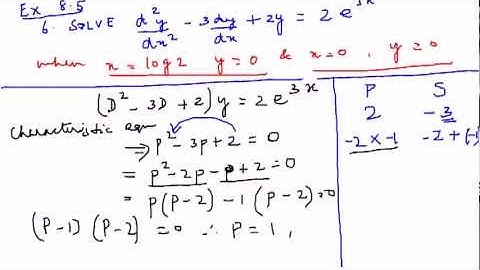 Ex 8.5
6. SOLVE d²y/dx² - 3dy/dx + 2y = 2e^3x
when x = log2 y = 0 & x = 0, y = 0
(D² - 3D + 2) y = 2e^3x
Characteristic eqn
⇒ p² - 3p + 2 = 0
= p² - 2p - p + 2 = 0
= p(p-2) - 1(p-2) = 0
(p-1) (p-2) = 0 ∴ p = 1,
P S
2 -3
-2 x -1 -2 + (-1)